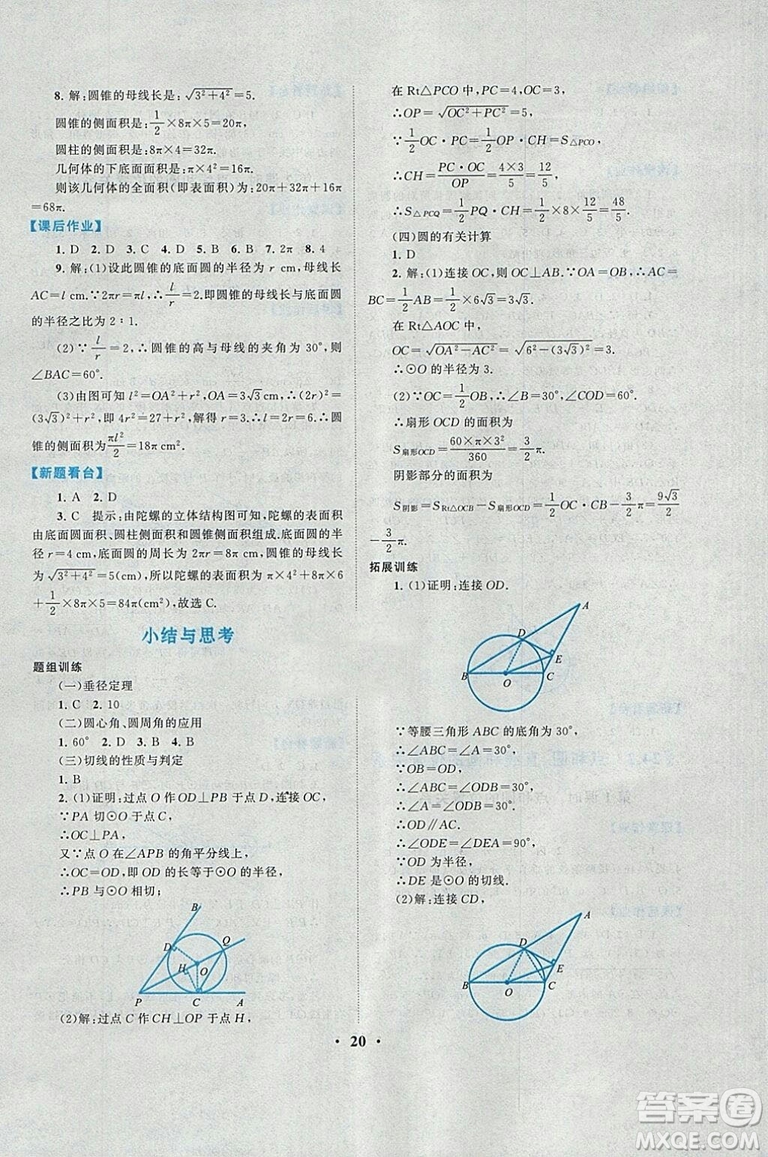 8. 解:圆锥的母线长是:√(3²+4²)=5.
圆锥的侧面积是:1/2×8π×5=20π,
圆柱的侧面积是:8π×4=32π.
几何体的下底面面积是:π×4²=16π.
则该几何体的全面积(即表面积)为:20π+32π+16π
=68π.
【课后作业】
1. D 2. D 3. C 4. B 5. B 6. B 7. 2π 8. 4
9. 解:(1)设此圆锥的底面圆的半径为 r cm,母线长
AC=l cm.∵2πr=πl,∴l/r=2,即圆锥的母线长与底面圆
的半径之比为 2∶1.
(2)∵l/r=2,∴圆锥的高与母线的夹角为 30°,则
∠BAC=60°.
(3)由图可知 l²=OA²+r²,OA=3√3 cm,∴(2r)²=
(3√3)²+r²,即 4r²=27+r²,解得 r=3.∴l=2r=6.∴圆
锥的侧面积为πl²/2=18π cm².
【新题看台】
1. A 2. D
3. C 提示:由陀螺的立体结构图可知,陀螺的表面积
由底面圆面积、圆柱侧面积和圆锥侧面积组成.底面圆的半
径 r=4 cm,底面圆的周长为 2πr=8π cm,圆锥的母线长为
√(3²+4²)=5(cm),所以陀螺的表面积为 π×4²+8π×6
+1/2×8π×5=84π(cm²),故选 C.
小结与思考
题组训练
(一)垂径定理
1. C 2. 10
(二)圆心角、圆周角的应用
1. 60° 2. D 3. B 4. B
(三)切线的性质与判定
1. B
2. (1)证明:过点 O 作 OD⊥PB 于点 D,连接 OC.
∵PA 切⊙O 于点 C,
∴OC⊥PA.
又∵点 O 在∠APB 的角平分线上,
∴OC=OD,即 OD 的长等于⊙O 的半径,
∴PB 与⊙O 相切;
B
D
Q
H
O
P
C
A
(2)解:过点 C 作 CH⊥OP 于点 H,
在 Rt△PCO 中,PC=4,OC=3,
∴OP=√(OC²+PC²)=5,
∵1/2OC·PC=1/2OP·CH=S△PCO,
∴CH=PC·OC/OP=4×3/5=12/5,
∴S△PCQ=1/2PQ·CH=1/2×8×12/5=48/5.
(四)圆的有关计算
1. D
2. 解:(1)连接 OC,则 OC⊥AB.∵OA=OB,∴AC=
BC=1/2AB=1/2×6√3=3√3.
在 Rt△AOC 中,
OC=√(OA²−AC²)=√(6²−(3√3)²)=3.
∴⊙O 的半径为 3.
(2)∵OC=1/2OB,∴∠B=30°,∠COD=60°.
∴扇形 OCD 的面积为
S扇形OCD=60×π×3²/360=3/2π.
阴影部分的面积为
S阴影=SRt△OCB−S扇形OCD=1/2OC·CB−3/2π=9√3/2
−3/2π.
拓展训练
1. (1)证明:连接 OD.
A
D
E
B
O
C
∵等腰三角形 ABC 的底角为 30°,
∴∠ABC=∠A=30°.
∵OB=OD,
∴∠ABC=∠ODB=30°,
∴∠A=∠ODB=30°,
∴OD∥AC,
∴∠ODE=∠DEA=90°,
∵OD 为半径,
∴DE 是⊙O 的切线.
(2)解:连接 CD,
A
D
E
B
O
C
· 20 ·
答案圈
MXQE.COM